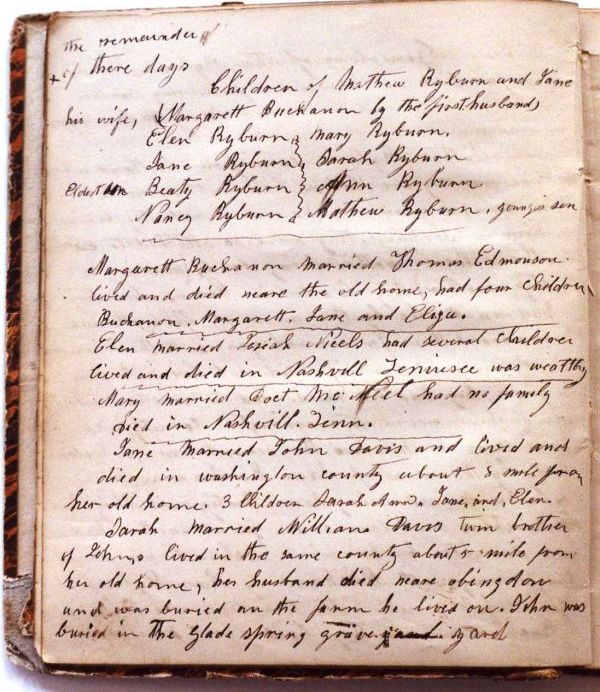 the remeinder
+ of there days
Children of Mathew Ryburn and Jane
his wife, (Margarett Buchanon by the first husband)
Elen Ryburn Mary Ryburn.
Jane Ryburn Sarah Ryburn
Eldest son Beaty Ryburn Ann Ryburn
Nancy Ryburn Mathew Ryburn, youngis son
Margarett Buchanon married Thomas Edmonson.
lived and died neare the old home, had four Children
Buchanon, Margarett, Jane and Eliza.
Elen married Josiah Nicels had several Children
lived and died in Nashvill Tennesee was wealthy
Mary married Doct Mc Neel had no family
Died in Nashvill. Tinn.
Jane married John Davis and lived and
died in washington county about 5 mile from
her old home. 3 Children Sarah Ann. Jane, and, Elen.
Sarah married William Davis twin brother
of Johns lived in the same county about 5 mile from
her old home, her husband died neare abingdon
and was buried on the farm he lived on. John was
buried in the Glade spring grave yard